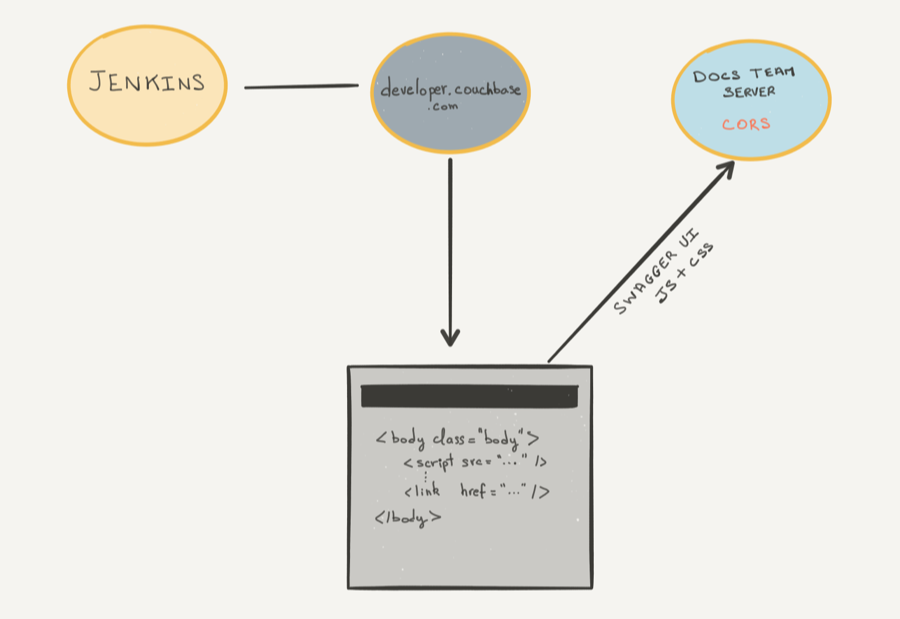 JENKINS
developer.couchbase
.com
DOCS TEAM
SERVER
CORS
SWAGGER UI
JS + CSS
<body class="body">
<script src="..." />
<link href="..." />
</body>